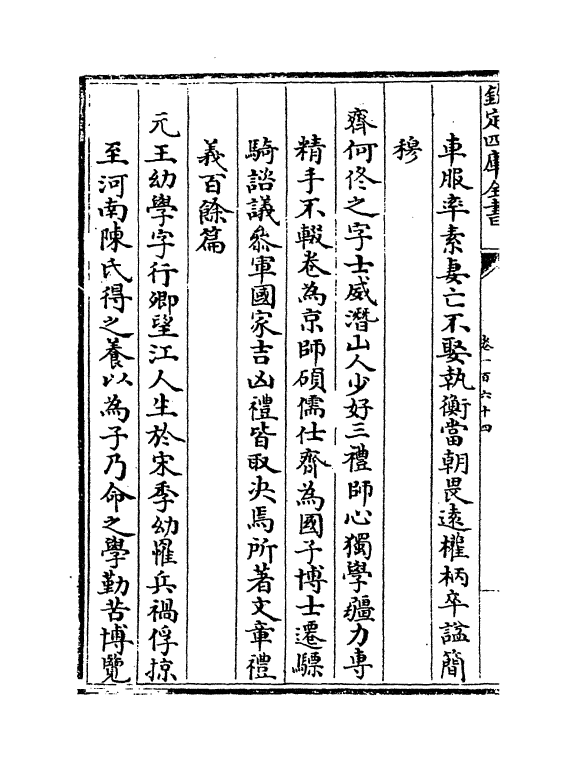 欽定四庫全書
卷一百六十四
車服率素妻亡不娶執衡當朝畏遠權柄卒諡簡
穆
齊何佟之字士威潛山人少好三禮師心獨學彊力專
精手不輟卷為京師碩儒仕齊為國子博士遷驃
騎諮議叅軍國家吉凶禮皆取決焉所著文章禮
義百餘篇
元王幼學字行卿望江人生於宋季幼罹兵禍俘掠
至河南陳氏得之養以為子乃命之學勤苦博覽